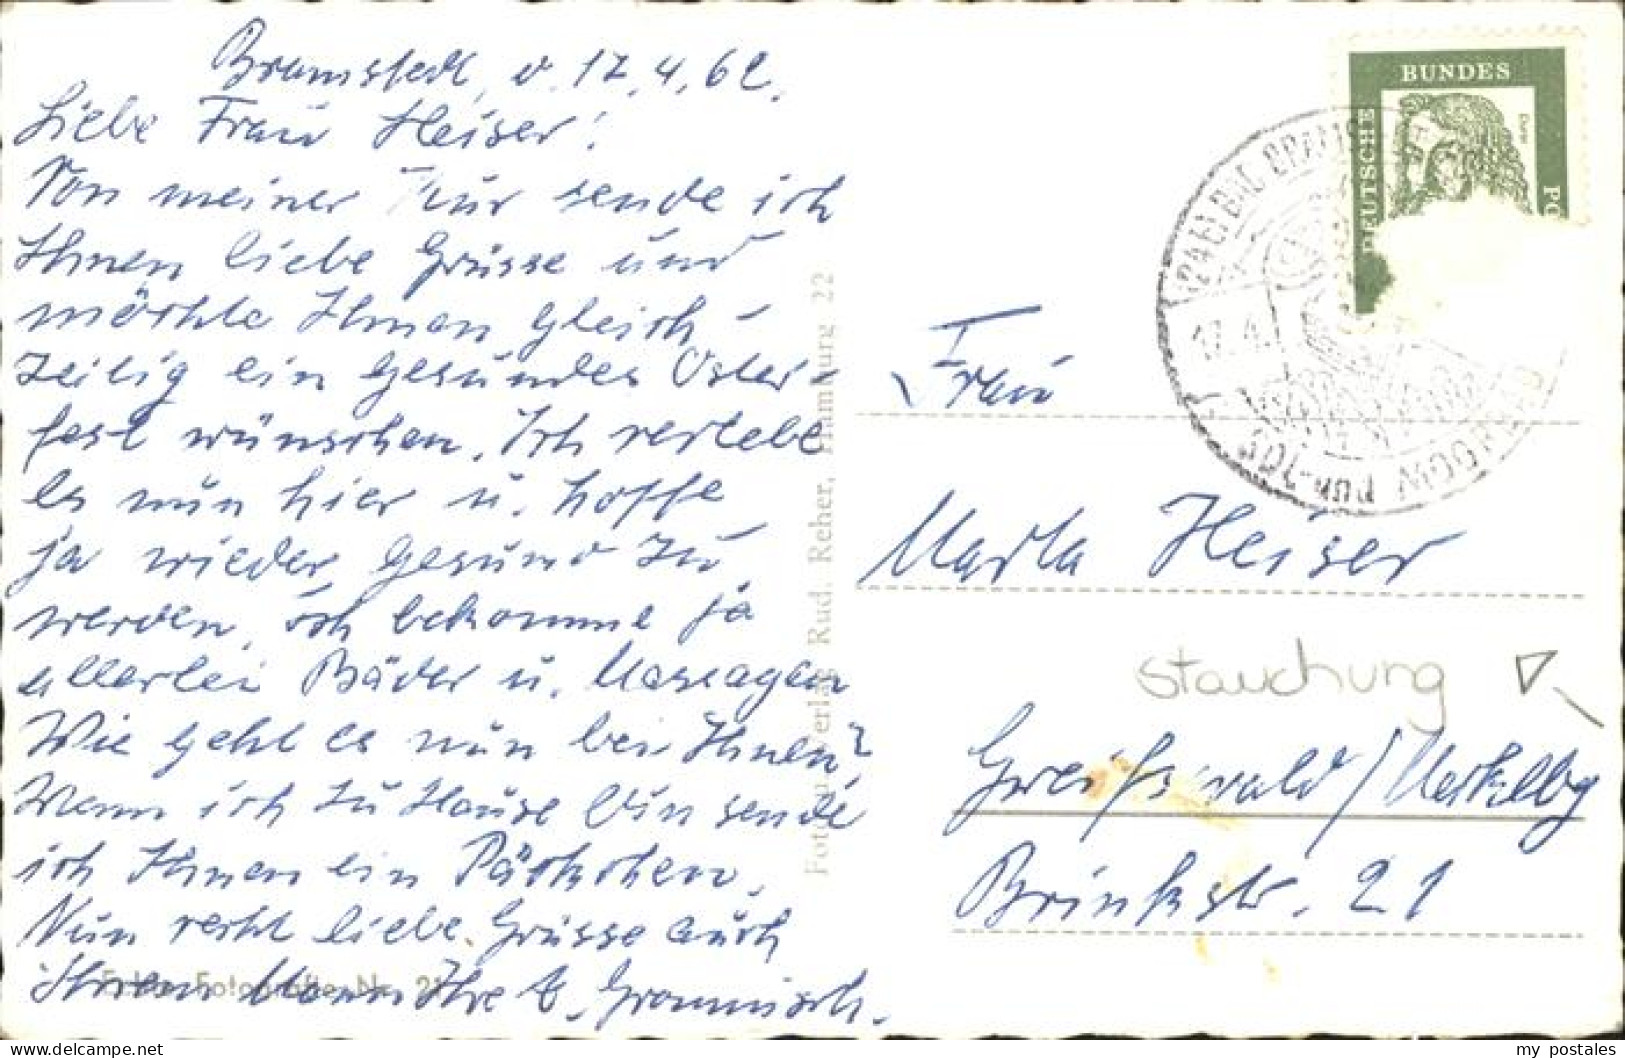 Bramstedt, d. 17.4.62.
Liebe Frau Heiser!
Von meiner Kur sende ich
Ihnen liebe Grüsse und
möchte Ihnen gleich-
zeitig ein gesundes Oster-
fest wünschen. Ich verlebe
es nun hier u. hoffe
ja wieder gesund zu
werden, ich bekomme ja
allerlei Bäder u. Massagen
Wie geht es nun bei Ihnen?
Wenn ich zu Hause bin sende
ich Ihnen ein Päckchen.
Nun recht liebe Grüsse auch
Ihrem Mann Ihre
Echte Fotografie Nr. 21
Foto u. Verlag Rud. Reher, Hamburg 22
DEUTSCHE
BUNDES
PO
Dürer
(24b) BAD BRAMS
17.4.
SOL- und MOORBAD
Frau
Marta Heiser
Stauchung
Greifswald/Mecklbg
Brinkstr. 21
my postales